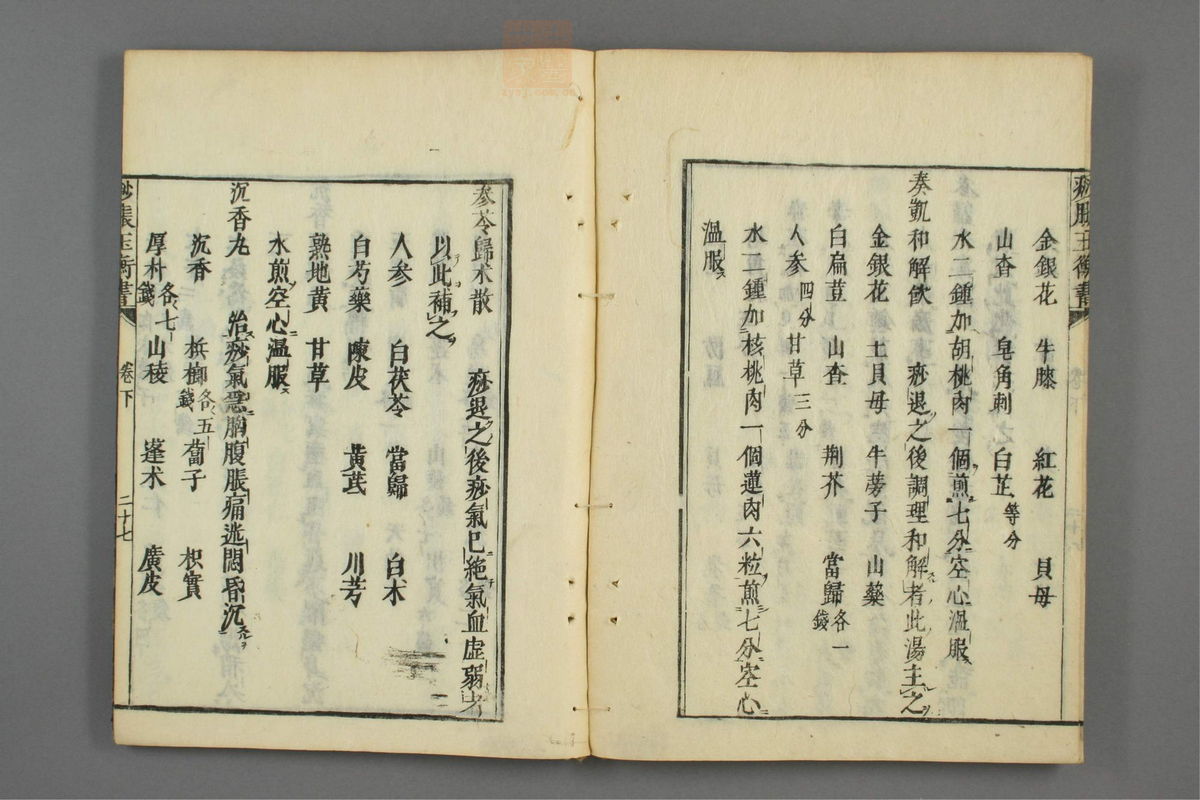 痧脹玉衡書
金銀花 牛膝 紅花 貝母
山査 皂角刺 白芷等分
水二鍾加胡桃肉一個煎七分空心溫服
奏凱和解飲 痧退之後調理和解者此湯主之
金銀花 土貝母 牛蒡子 山藥
白扁荳 山査 荆芥 當歸各一錢
人參四分 甘草三分
水二鍾加核桃肉一個蓮肉六粒煎七分空心
溫服
參苓歸术散 痧退之後痧氣已絶氣血虛弱者
以此補之
人參 白茯苓 當歸 白术
白芍藥 陳皮 黃芪 川芎
熟地黃 甘草
水煎空心溫服
沉香丸 治痧氣急胸腹脹痛迷悶昏沉
沉香 梹榔各五錢 蔔子 枳實
厚朴各七錢 山稜 蓬术 廣皮
痧脹玉衡書 卷下 二十七